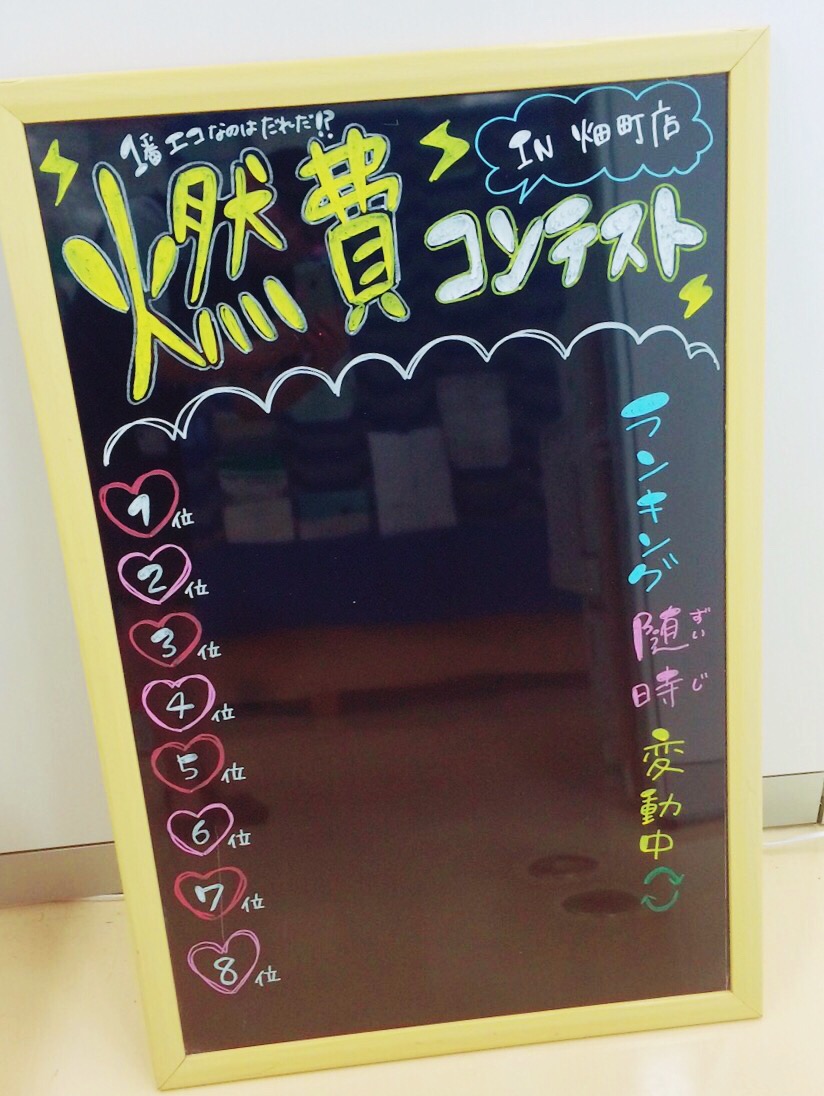 1番エコなのはだれだ!?
IN 畑町店
燃費コンテスト
1位
2位
3位
4位
5位
6位
7位
8位
ランキング
随時
ずいじ
変動中